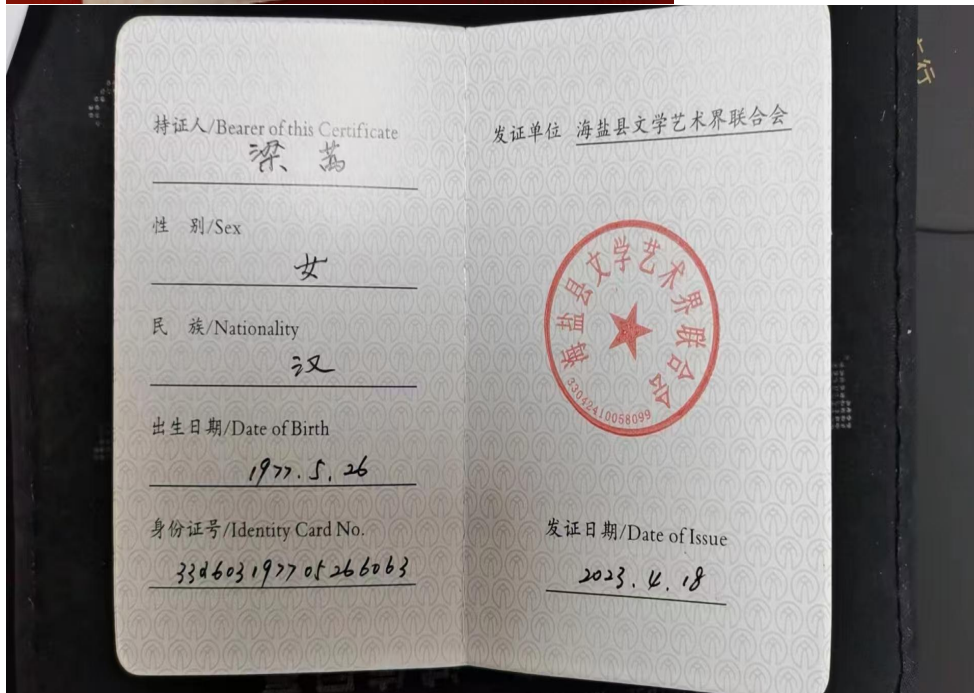 持证人/Bearer of this Certificate
梁 蒿
性 别/Sex
女
民 族/Nationality
汉
出生日期/Date of Birth
1977.5.26
身份证号/Identity Card No.
330603197705266063
发证单位 海盐县文学艺术界联合会
海盐县文学艺术界联合会
33042410058099
发证日期/Date of Issue
2023.4.18
行